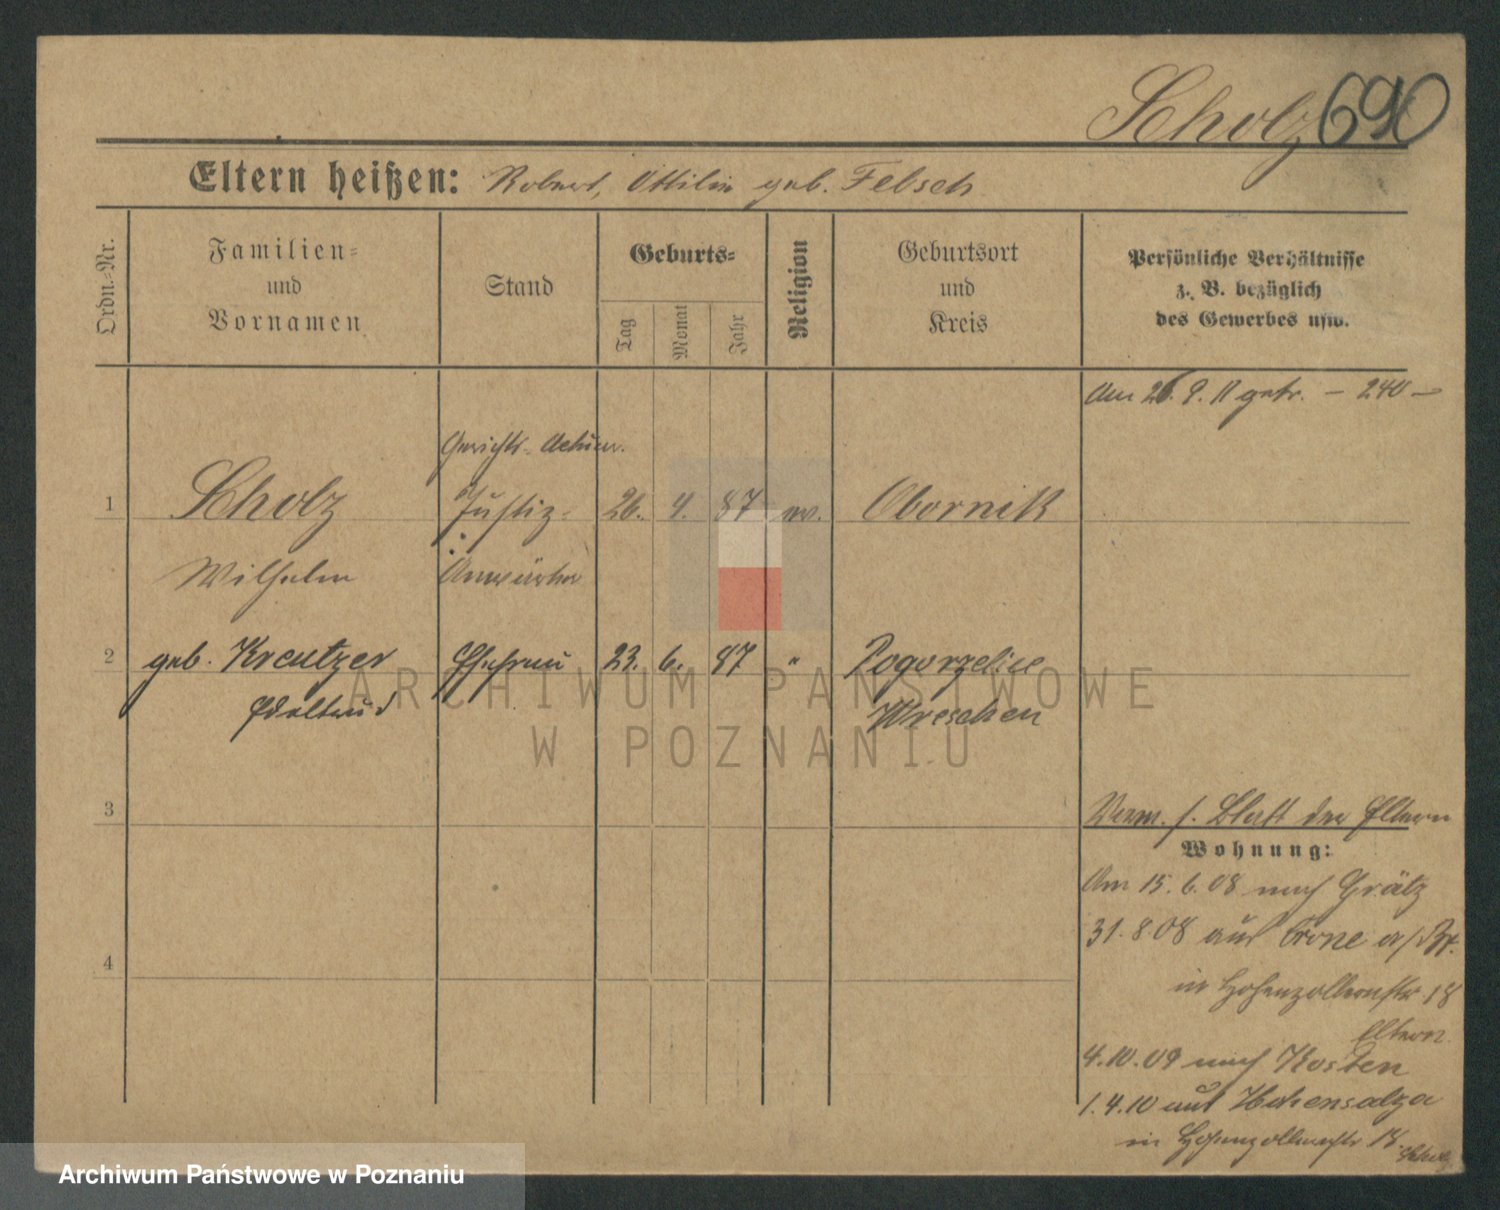 Scholz 690
Eltern heißen: Robert, Ottilie geb. Felsch
Ordn.-Nr.
Familien-
und
Vornamen
Stand
Geburts-
Tag
Monat
Jahr
Religion
Geburtsort
und
Kreis
Persönliche Verhältnisse
z. B. bezüglich
des Gewerbes usw.
Am 26. 9. 11 getr. – 240 –
Gerichts-Actuar.
1 Scholz Justiz- 26. 4. 87 ev. Obornik
Wilhelm Anwärter
2 geb. Kreutzer Ehefrau 23. 6. 87 " Pogorzelice
Edeltrud Wreschen
3
Verm. s. Blatt der Eltern
Wohnung:
Am 15. 6. 08 nach Grätz
31. 8. 08 aus Crone a/Br.
4
in Hohenzollernstr 18
Eltern
4. 10. 09 nach Kosten
1. 4. 10 aus Hohensalza
in Hohenzollernstr 18.
ARCHIWUM PAŃSTWOWE
W POZNANIU
Archiwum Państwowe w Poznaniu